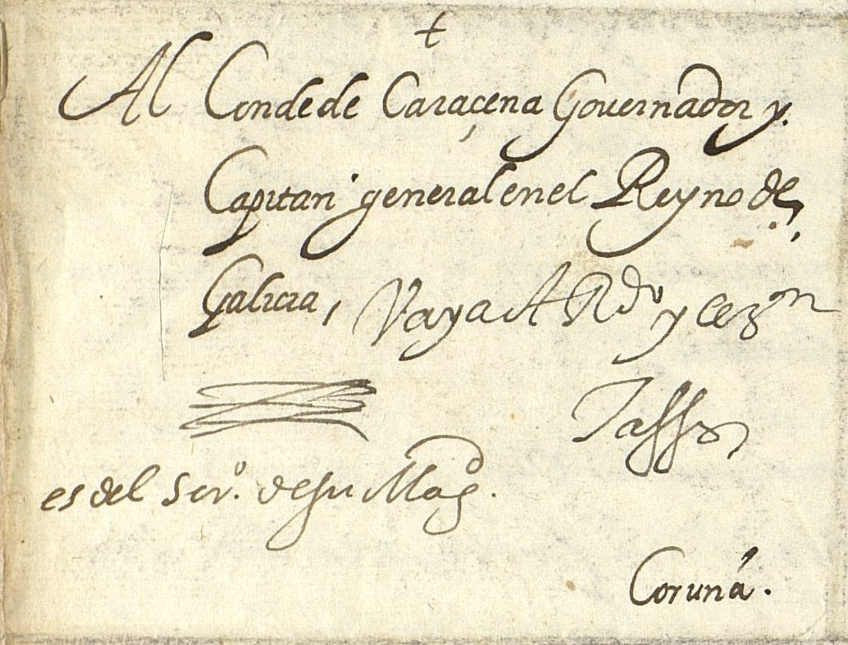 Al Conde de Caraçena Governador y
Capitan general en el Reyno de
Galicia, Vaya A Rdo y cezon
Tassis
es del Servo. de su Magd.
Coruña.